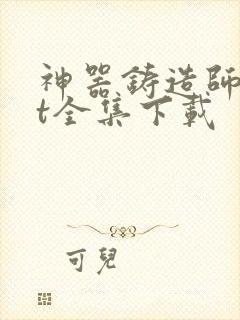 神器鋳造師
t全集下載
可兒